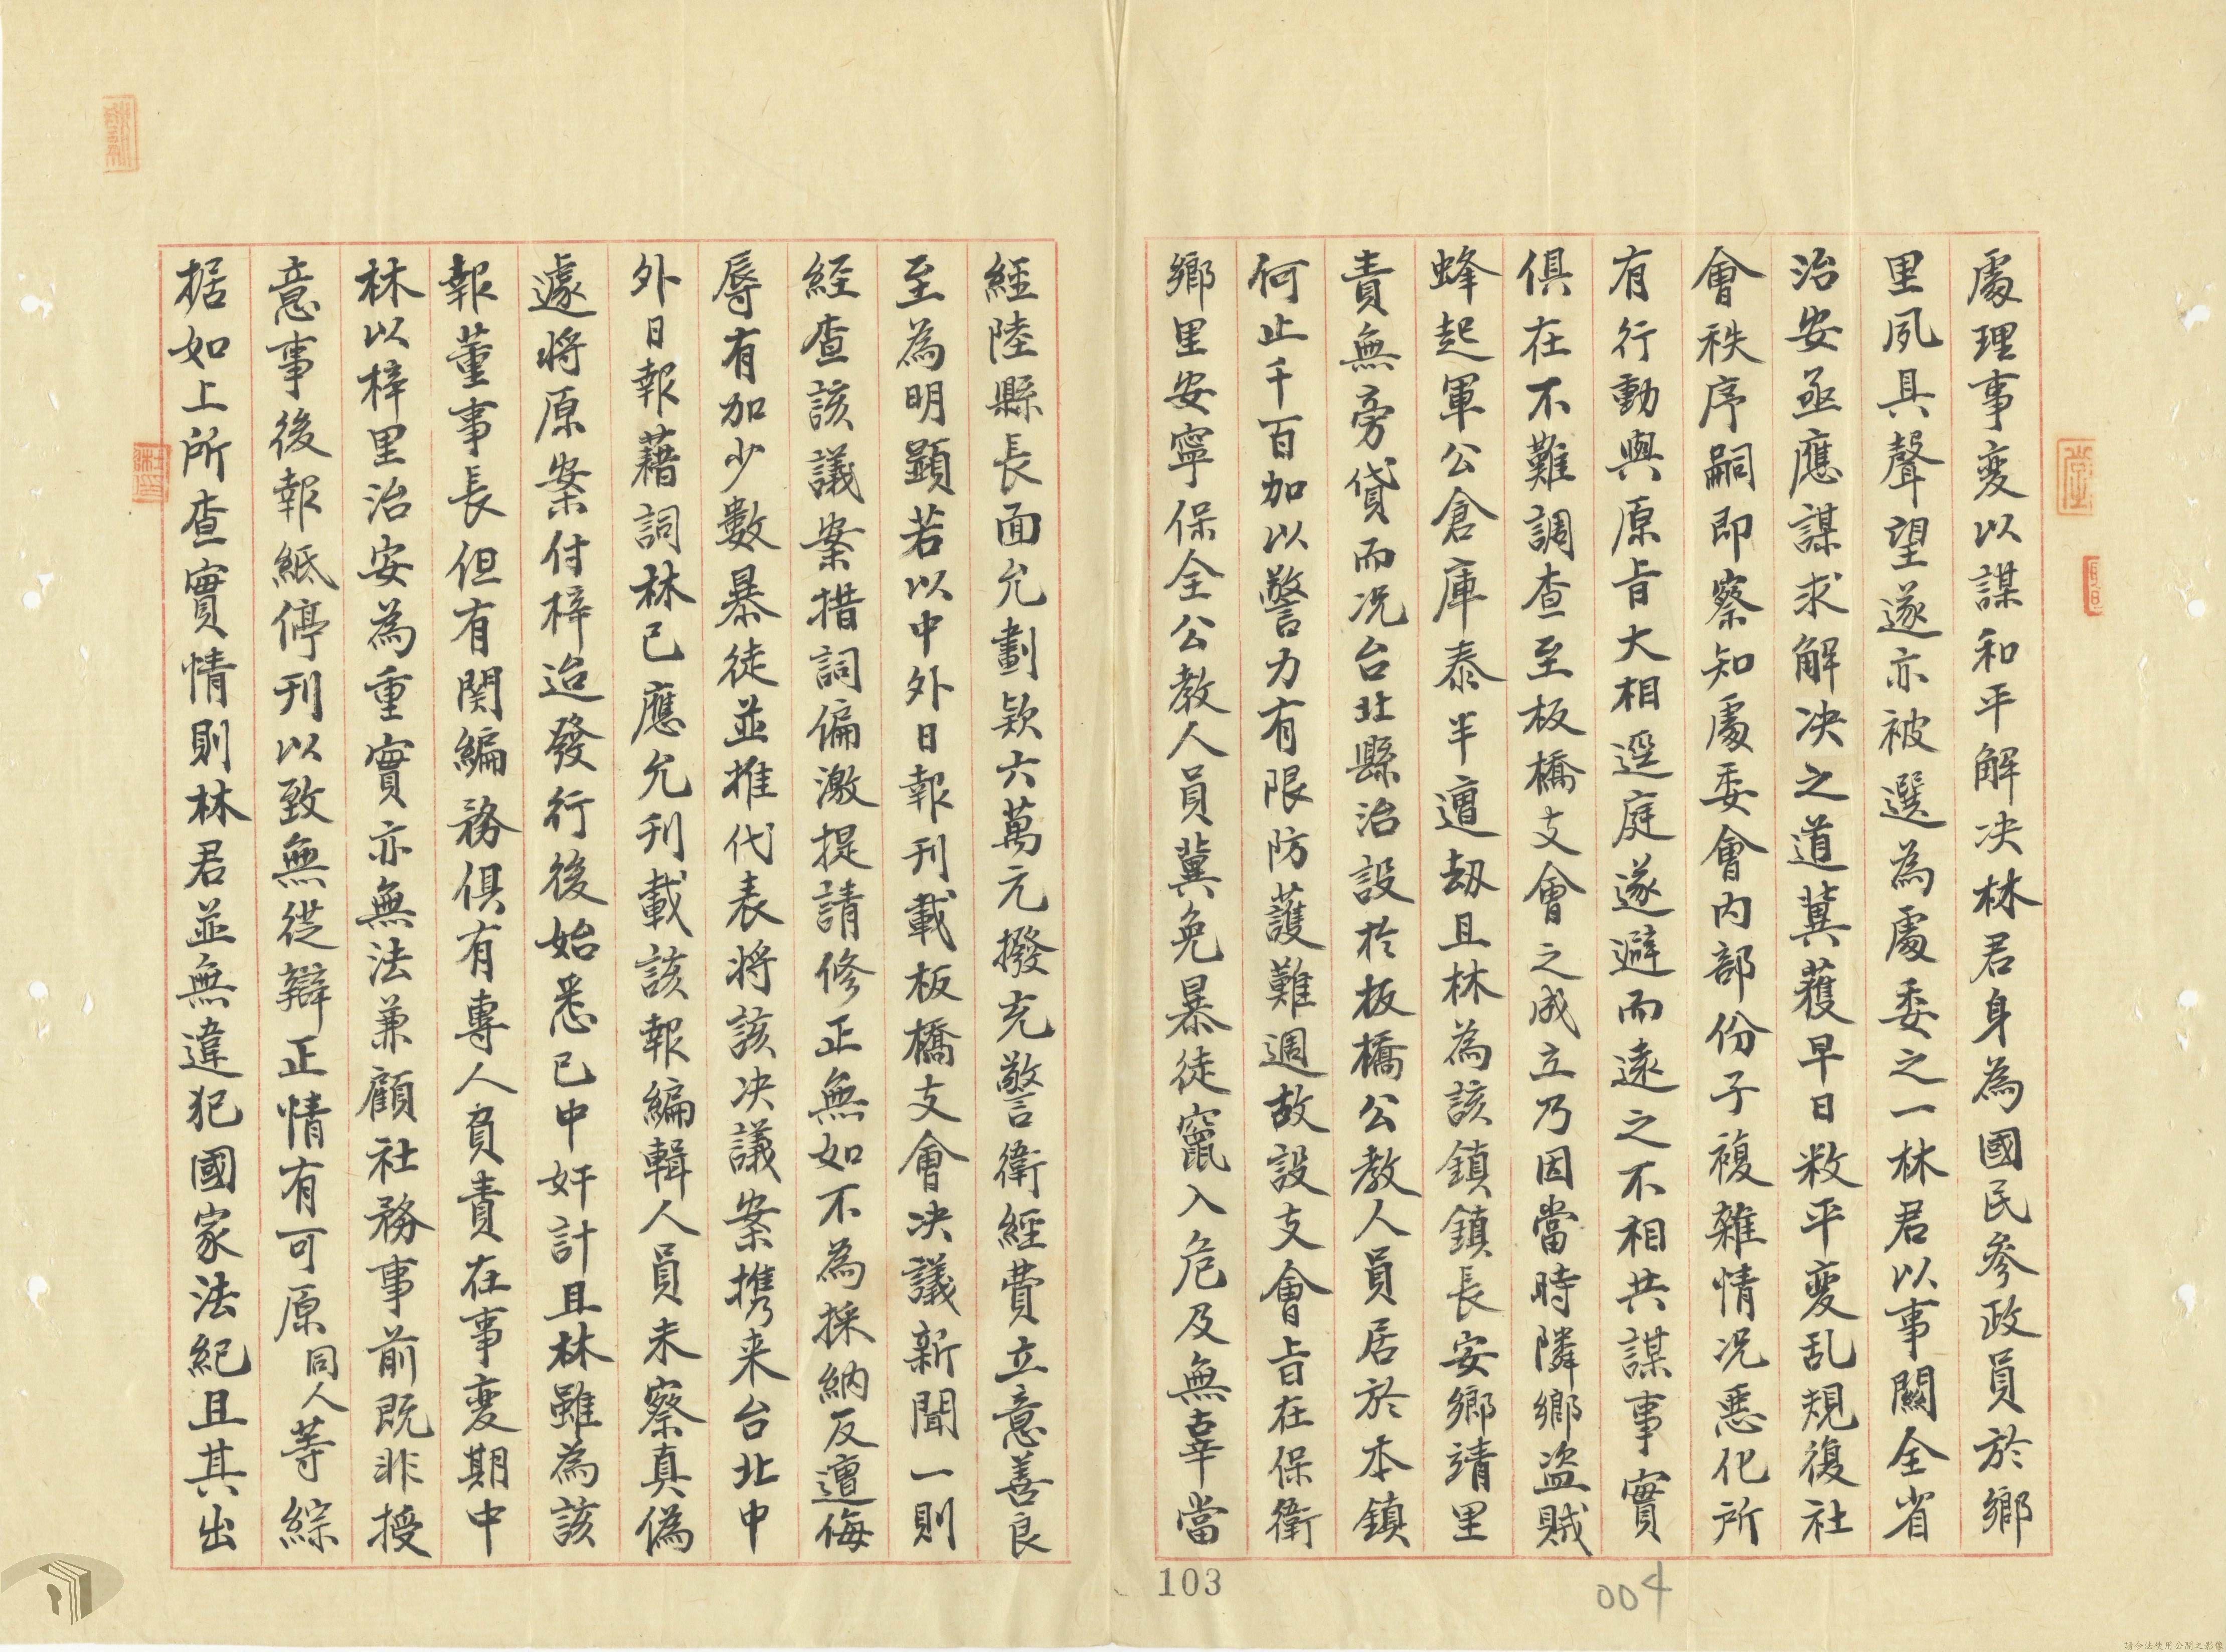 處理事变以謀和平解决林君身為國民參政員於鄉
里夙具聲望遂亦被選為處委之一林君以事關全省
治安亟應謀求解决之道冀蒦早日敉平变乱規復社
會秩序嗣即察知處委會内部份子複雜情况悪化所
有行動與原旨大相逕庭遂避而遠之不相共謀事實
俱在不難調查至板橋支會之成立乃因當時隣鄉盜賊
蜂起軍公倉庫泰半遭刼且林為該鎮鎮長安鄉靖里
責無旁貸而况台北縣治設於板橋公教人員居於本鎮
何止千百加以警力有限防護難週故設支會旨在保衛
鄉里安寧保全公教人員冀免暴徒竄入危及無辜當
經陸縣長面允劃欵六萬元撥充警衛經費立意善良
至為明顕若以中外日報刊載板橋支會决議新聞一則
経查該議案措詞偏激提請修正無如不為採納反遭侮
辱有加少數暴徒並推代表将該决議案携来台北中
外日報藉詞林已應允刊載該報編輯人員未察真偽
遽将原案付梓迨發行後始悉已中奸計且林雖為該
報董事長但有関編務俱有專人負責在事变期中
林以梓里治安為重實亦無法兼顧社務事前既非授
意事後報紙停刊以致無從辯正情有可原同人等綜
据如上所查實情則林君並無違犯國家法紀且其出
103
004
請合法使用公開之影像